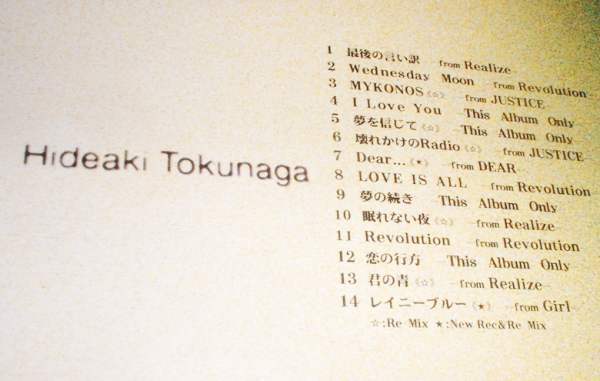 Hideaki Tokunaga
1 最後の言い訳 —from Realize—
2 Wednesday Moon —from Revolution—
3 MYKONOS《☆》 —from JUSTICE
4 I Love You This Album Only
5 夢を信じて《☆》 This Album Only
6 壊れかけのRadio《☆》 —from JUSTICE
7 Dear…《★》 —from DEAR—
8 LOVE IS ALL —from Revolution
9 夢の続き This Album Only
10 眠れない夜《☆》 —from Realize—
11 Revolution —from Revolution
12 恋の行方 —This Album Only
13 君の青《☆》 —from Realize—
14 レイニーブルー《★》 —from Girl—
☆:Re Mix ★:New Rec&Re Mix